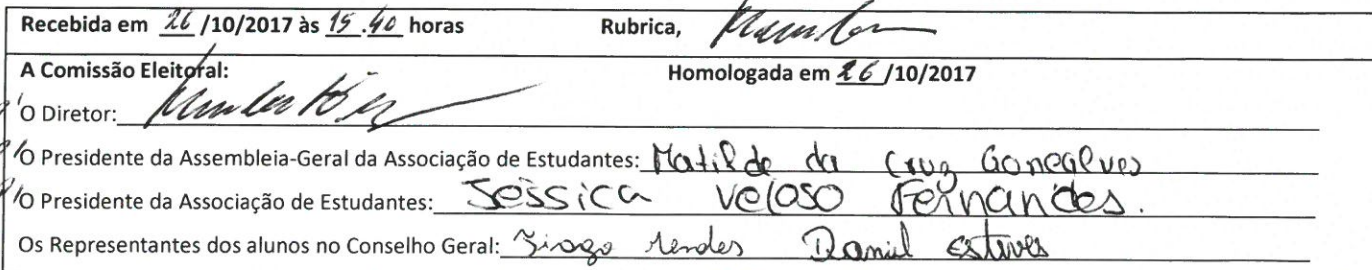 Recebida em 26/10/2017 às 15.40 horas Rubrica,
A Comissão Eleitoral: Homologada em 26/10/2017
O Diretor:
O Presidente da Assembleia-Geral da Associação de Estudantes: Matilde da Cruz Gonçalves
O Presidente da Associação de Estudantes: Jéssica Veloso Fernandes.
Os Representantes dos alunos no Conselho Geral: Tiago Mendes Daniel Esteves